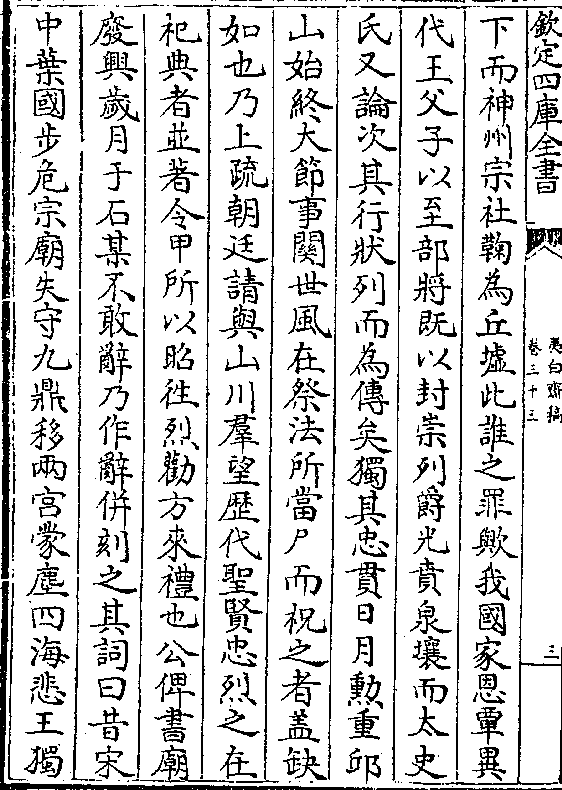 欽定四庫全書
夷白齋稿
卷三十三
三
下而神州宗社鞠為丘墟此誰之罪歟我國家恩覃異
代王父子以至部將既以封崇列爵光賁泉壤而太史
氏又論次其行狀列而為傳矣獨其忠貫日月勲重邱
山始終大節事關世風在祭法所當尸而祝之者盖缺
如也乃上疏朝廷請與山川羣望歴代聖賢忠烈之在
祀典者並著令甲所以昭徃烈勸方來禮也公俾書廟
廢興歲月于石某不敢辭乃作辭併刻之其詞曰昔宋
中葉國步危宗廟失守九鼎移兩宮蒙塵四海悲王獨